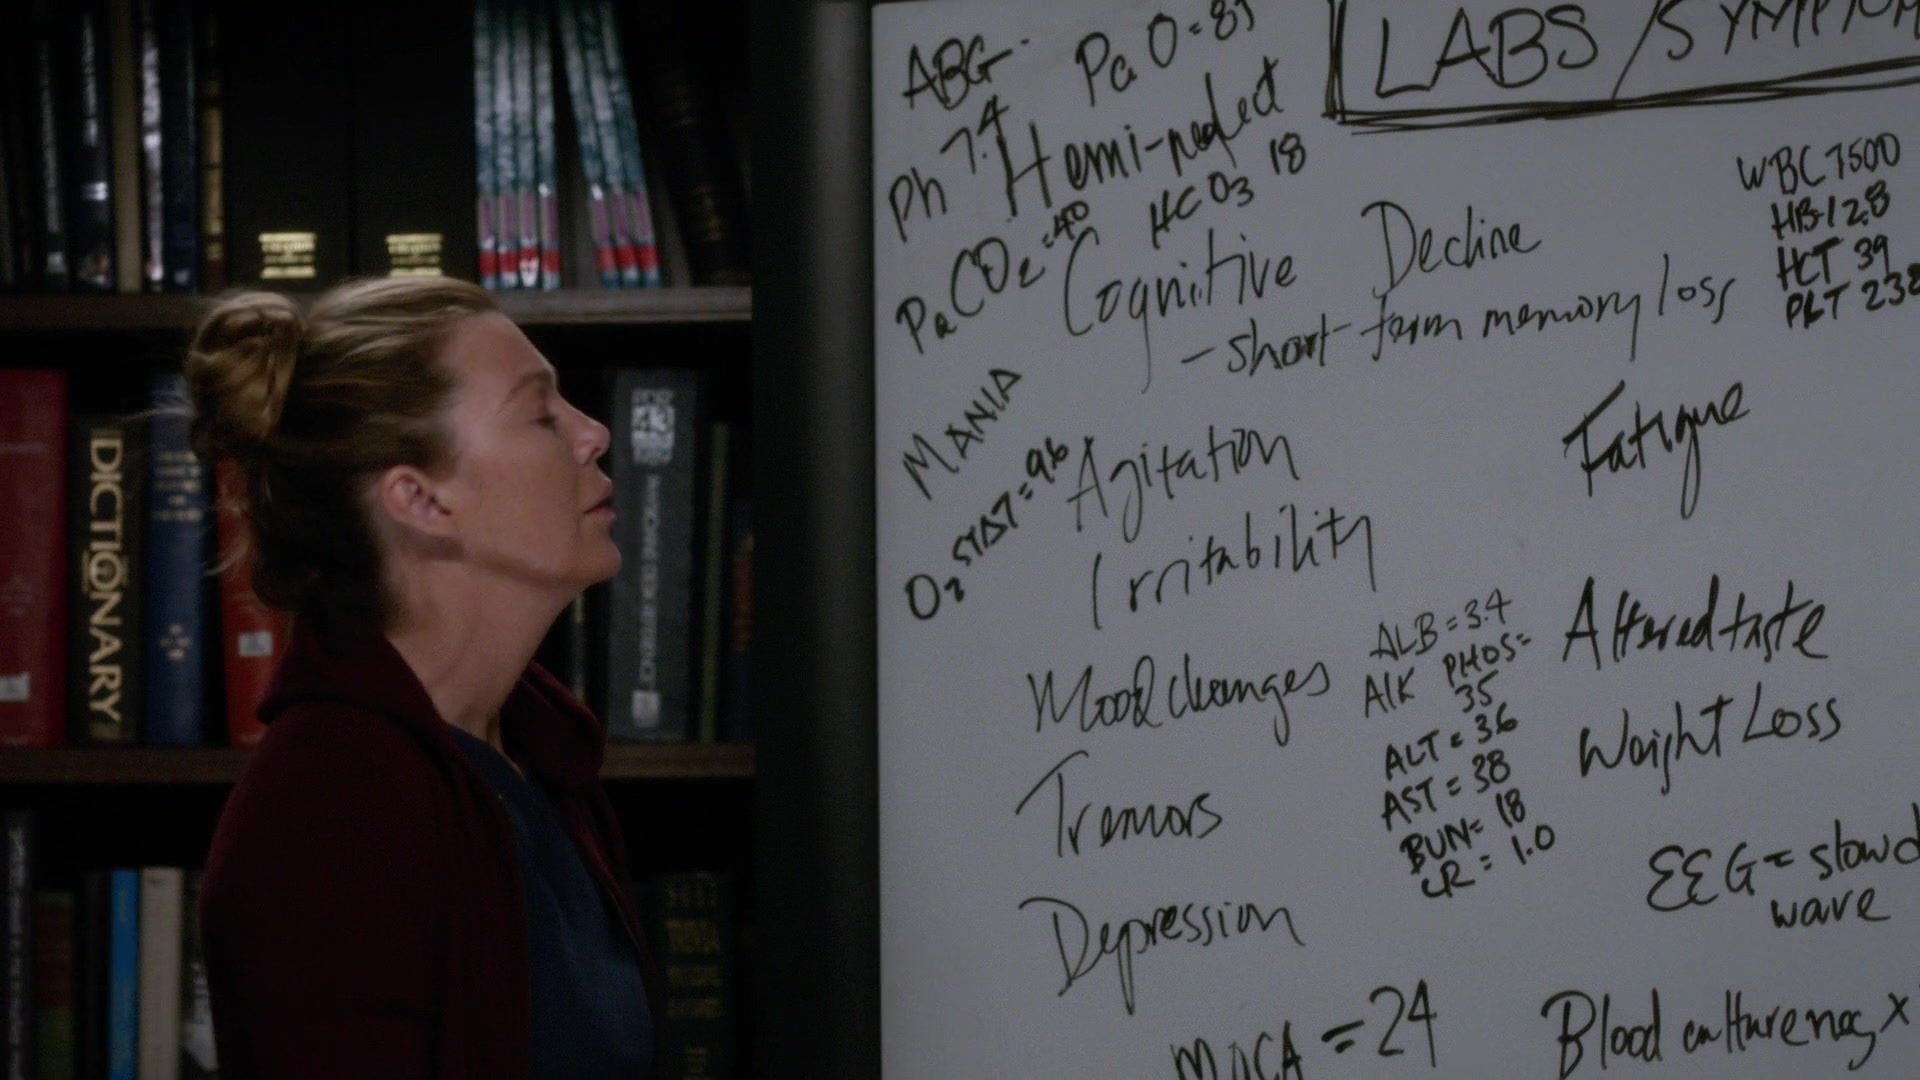 DICTIONARY
43
ABG
PaO=89
LABS/SYMPTOM
Ph 7.4
Hemi-neglect
PaCO2=40
HCO3 18
WBC 7500
HB-12.8
HCT 39
PLT 232
Cognitive Decline
-short-term memory loss
MANIA
O2 STAT=96
Agitation
Fatigue
Irritability
Mood changes
ALB=3.4
AlK PHOS=
35
ALT=36
AST=38
BUN=18
CR=1.0
Altered taste
Weight Loss
Tremors
EEG=slowd
wave
Depression
MOCA=24
Blood culture neg x